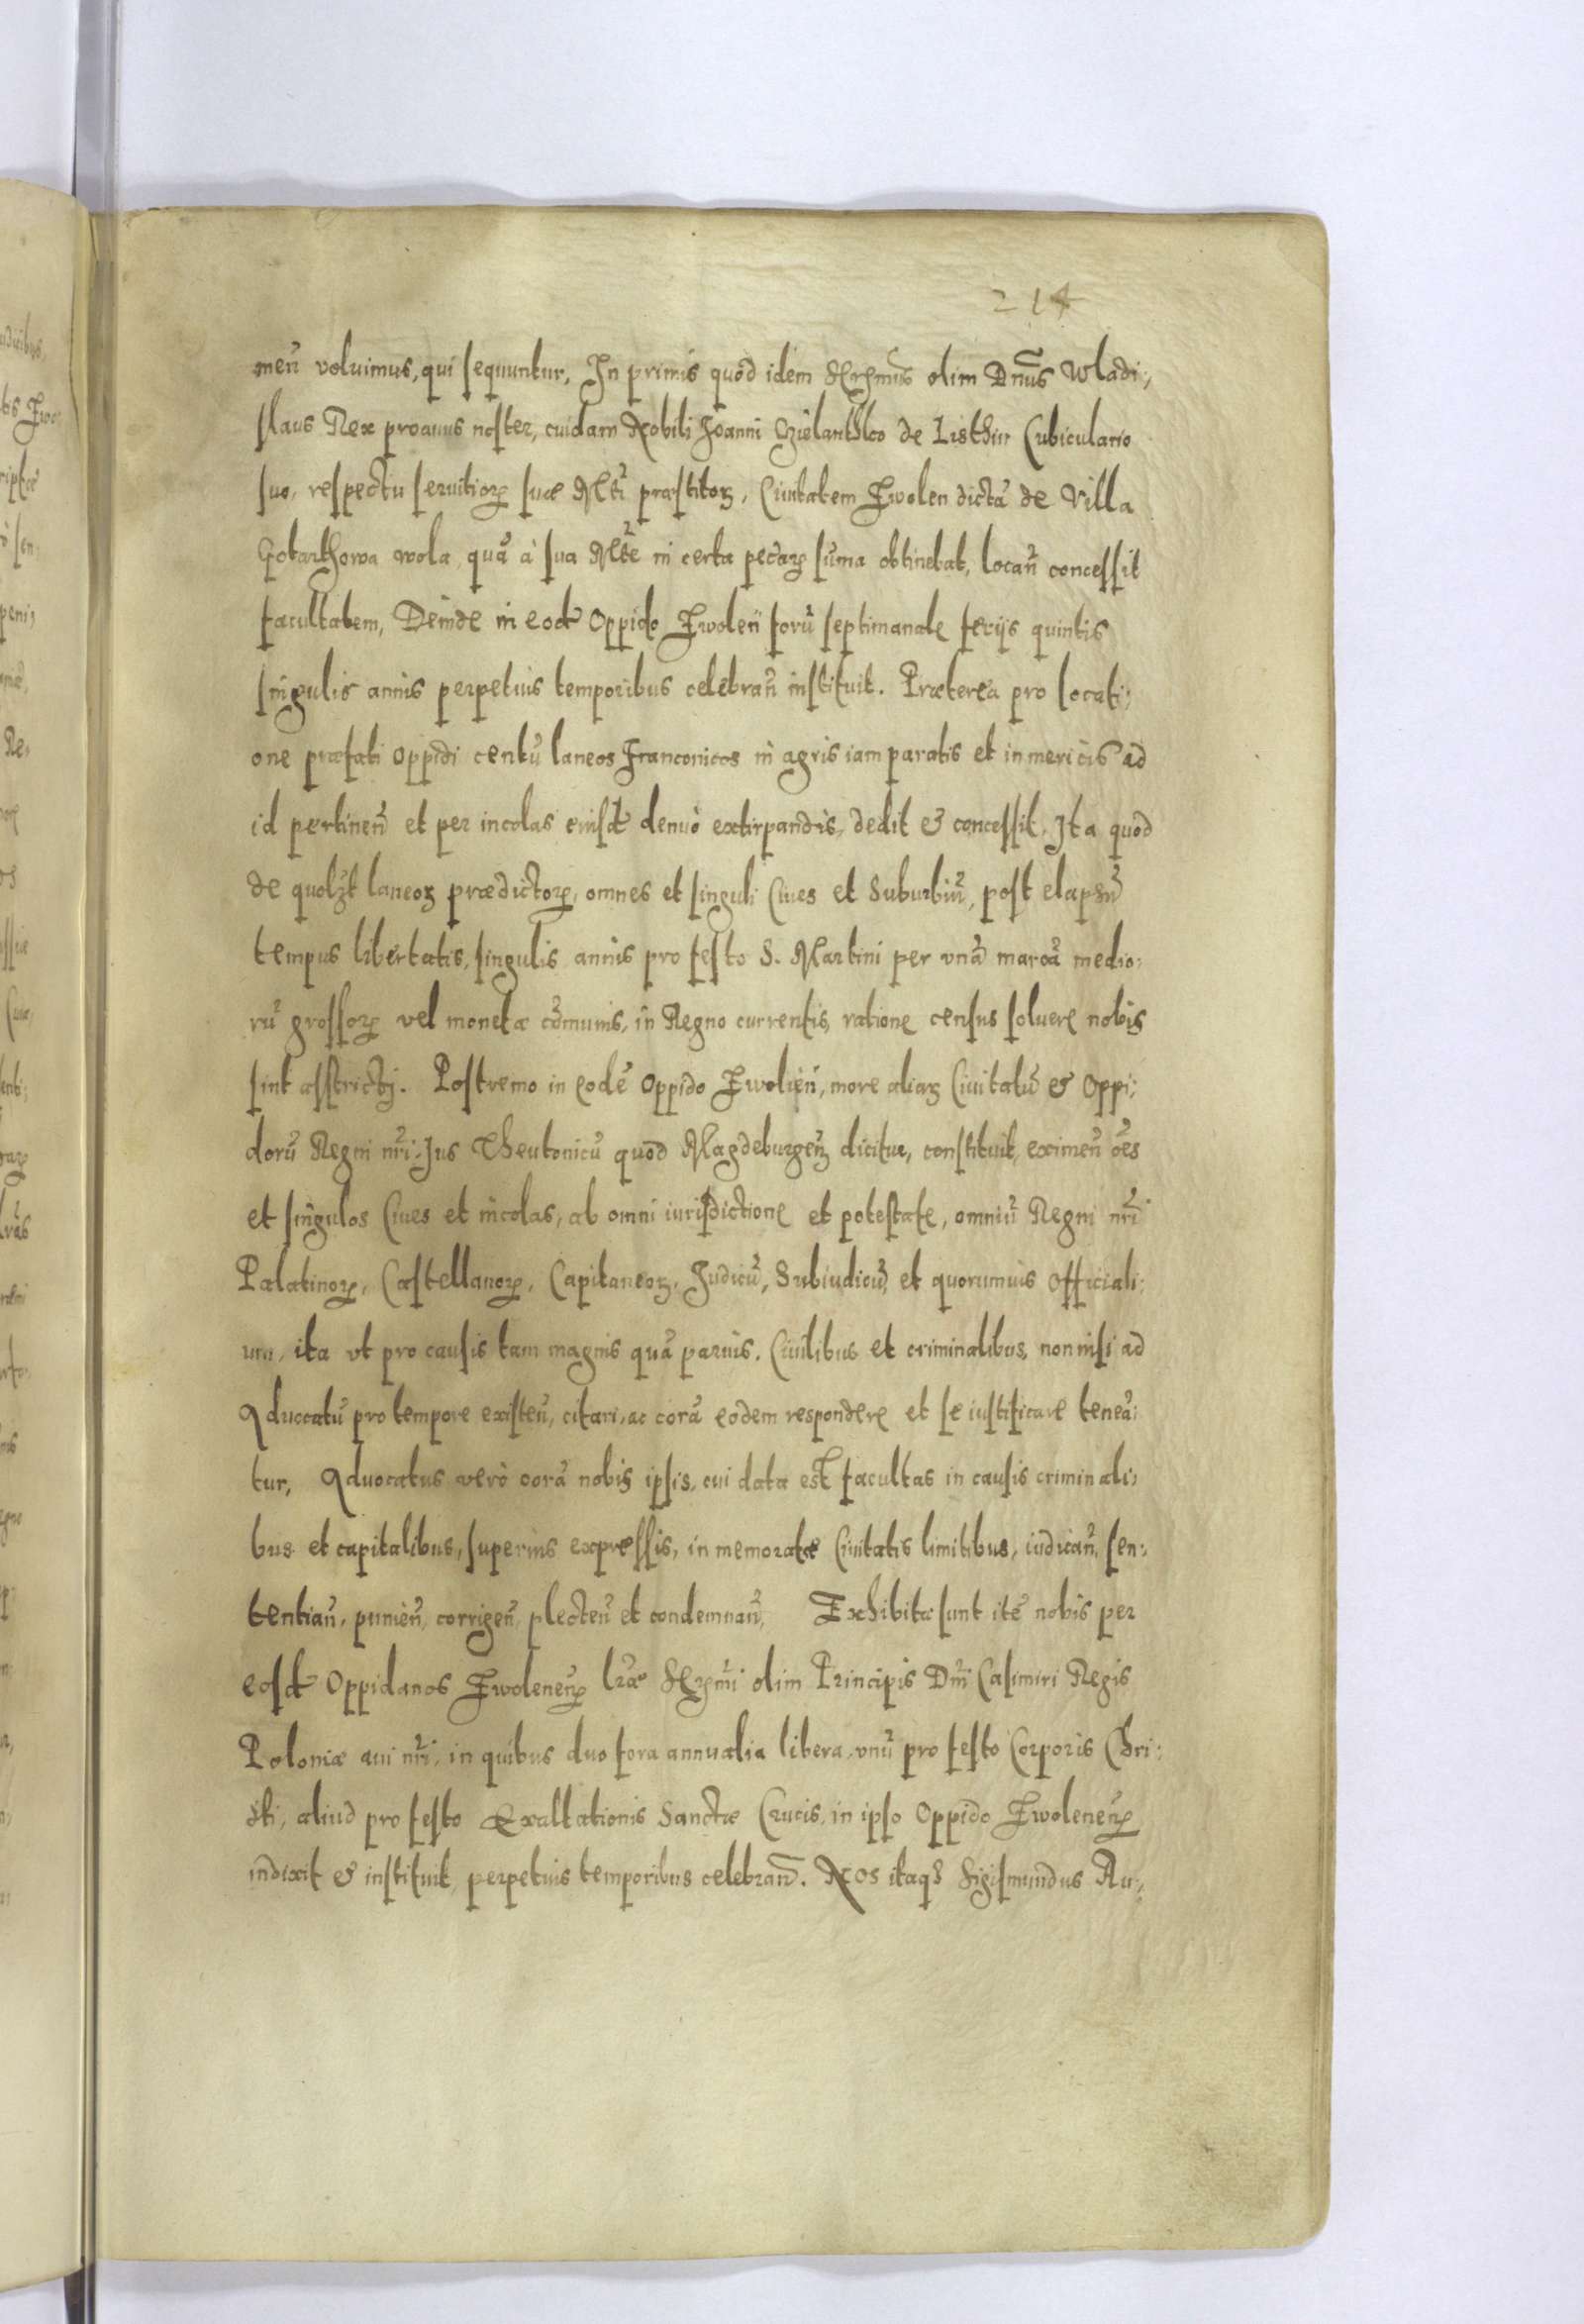 214
meñ voluimus, qui sequuntur, In primis quod idem Serꝫmus olim Dnūs Wladi:,
slaus Rex proauus noster, cuidam Nobili Joanni Czielanthko de Listhin Cubiculario
suo, respectu seruitioꝝ suæ Mti præstitoꝝ, Ciuitatem Zwolen dictā de Villa
Gotarthowa wola, quā à sua Mte in certa pecaꝝ suma obtinebat, locañ concessit
facultatem, Deinde in eod Oppido Zwolen̄ forū septimanale ferijs quintis
singulis annis perpetuis temporibus celebrañ instituit. Præterea pro locati:,
one præfati Oppidi centū laneos Franconicos in agris iam paratis et in mericis ad
id pertineñ et per incolas eiusd denuò extirpandis, dedit & concessit, Ita quod
de quolꝫt laneoꝝ prædictoꝝ, omnes et singuli Ciues et Suburbiū, post elapsū
tempus libertatis, singulis annis pro festo S. Martini per vnā marcā medio:
rū grossoꝝ vel monetæ cōmunis, in Regno currentis, ratione census soluere nobis
sint asstricti. Postremo in eodē Oppido Zwolien̄, more aliaꝝ Ciuitatū & Oppi:
dorū Regni nr̄i, Jus Theutonicū quod Magdeburgeñ dicitur, constituit, eximeñ oēs
et singulos Ciues et incolas, ab omni iurisdictione et potestate, omniū Regni nr̄i
Palatinoꝝ, Castellanoꝝ, Capitaneoꝝ, Judicū, Subiudicū, et quorumuis Officiali:
um, ita vt pro causis tam magnis quā paruis, Ciuilibus et criminalibus, non nisi ad
Aduocatū pro tempore existeñ, citari, ac corā eodem respondere et se iustificare teneā:
tur, Aduocatus verò corā nobis ipsis, cui data est facultas in causis criminali:
bus et capitalibus, superius expressis, in memoratæ Ciuitatis limitibus, iudicañ, sen:,
tentiañ, punieñ, corrigeñ, plecteñ et condemnañ, Exhibitæ sunt itē nobis per
eosd Oppidanos Zwoleneñ lr̄æ Serꝫmi olim Principis Dn̄i Casimiri Regis
Poloniæ aui nr̄i, in quibus duo fora annualia libera, vnū pro festo Corporis Chri:
sti, aliud pro festo Exaltationis Sanctæ Crucis, in ipso Oppido Zwoleneñ
indixit & instituit, perpetuis temporibus celebrañ. Nos itaqꝫ Sigismundus Au:,